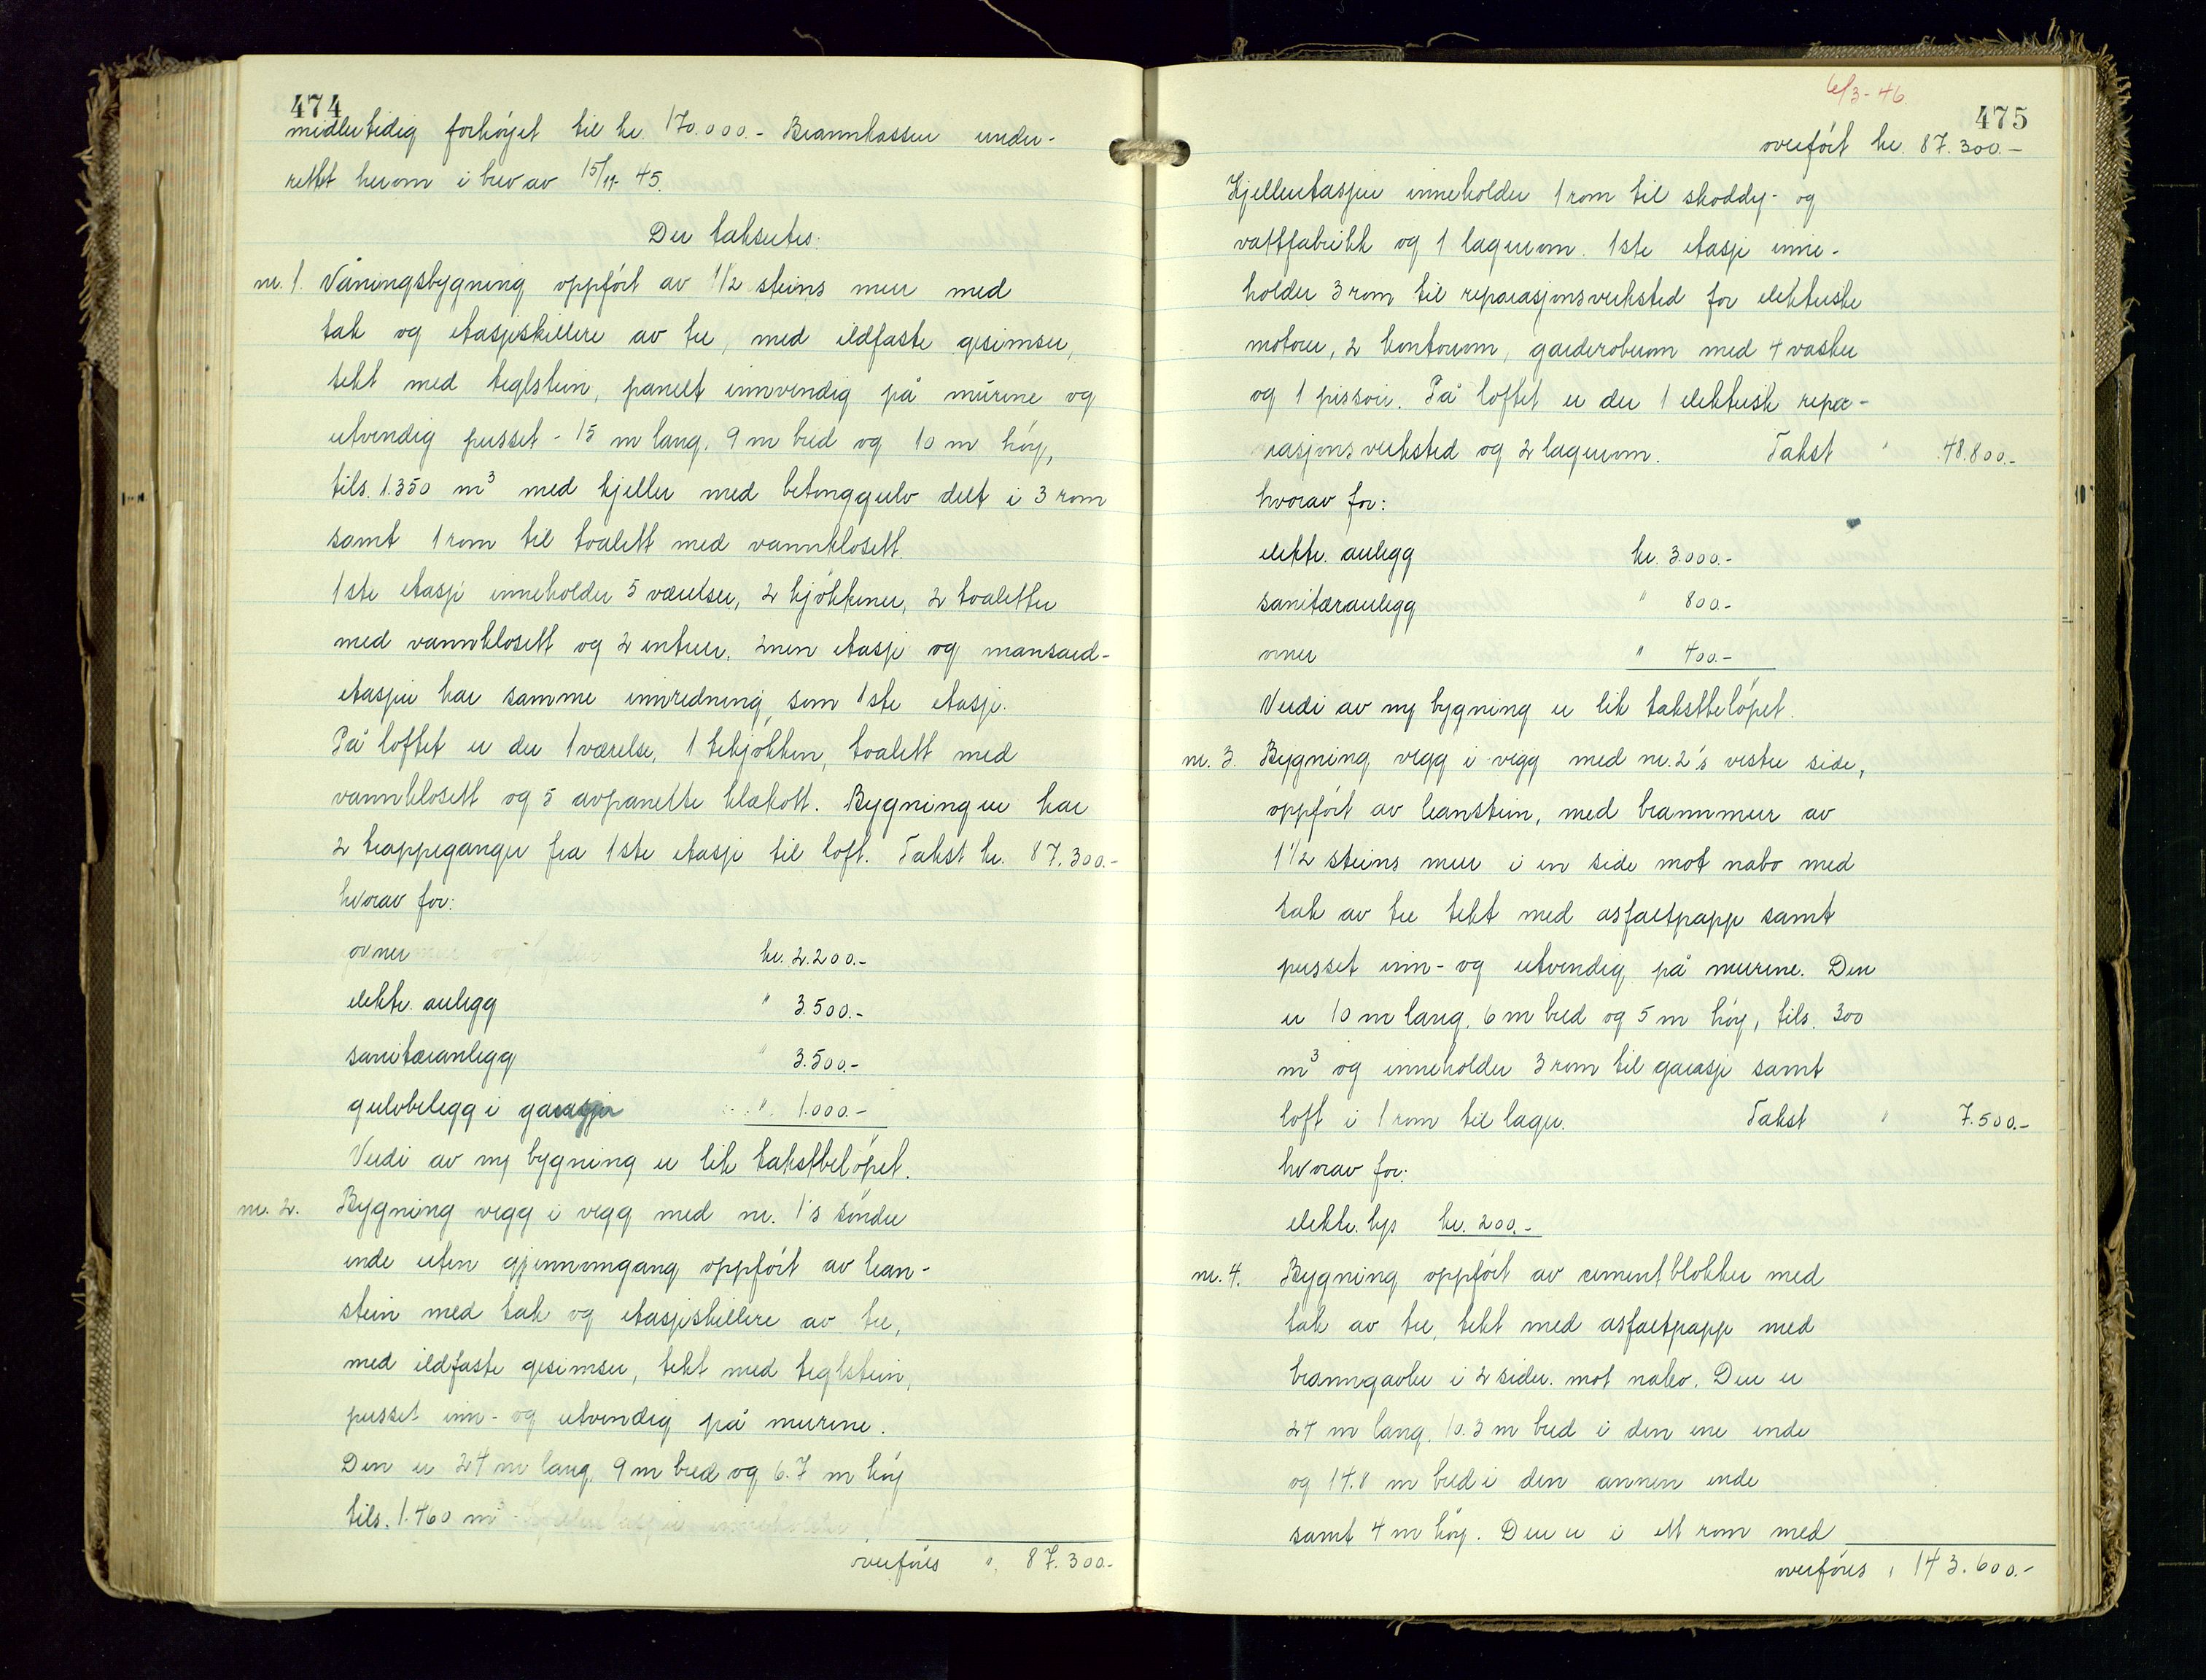 474
midlertidig forhöyet til kr. 170.000.- Brannkassen under-
rettet herom i brev av 15/11-45.
Der taksertes:
nr. 1. Våningsbygning oppfört av 1 1/2 steins mur med
tak og etasjeskillere av tre, med ildfaste gesimser,
tekt med teglstein, panelt innvendig på murene og
utvendig pusset - 15 m lang, 9 m bred og 10 m höy,
tils. 1.350 m³ med kjeller med betonggulv delt i 3 rom
samt 1 rom til toalett med vannklosett.
1ste etasje inneholder 5 værelser, 2 kjökkener, 2 toaletter
med vannklosett og 2 entreer. 2nen etasje og mansard-
etasjen har samme innredning som 1ste etasje.
På loftet er der 1 værelse, 1 tekjökken, toalett med
vannklosett og 5 avpanelte klækott. Bygningen har
2 trappeganger fra 1ste etasje til loft. Takst kr. 87.300.-
hvorav for:
ovner kr. 2.200.-
elektr. anlegg " 3.500.-
sanitæranlegg " 3.500.-
gulvbelegg i garasjen " 1.000.-
Verdi av ny bygning er lik takstbelöpet.
nr. 2. Bygning vegg i vegg med nr. 1's söndre
ende uten gjennomgang oppfört av lean-
stein med tak og etasjeskillere av tre,
med ildfaste gesimser, tekt med teglstein,
pusset inn- og utvendig på murene.
Den er 24 m lang, 9 m bred og 6.7 m höy
tils. 1.460 m³
overföres " 87.300.-
6/3-46.
475
overfört kr. 87.300.-
Kjelleretasjen inneholder 1 rom til shoddy- og
vattfabrikk og 1 lagerrom. 1ste etasje inne-
holder 3 rom til reparasjonsverksted for elektriske
motorer, 2 kontorrom, garderoberom med 4 vasker
og 1 pissoir. På loftet er der 1 elektrisk repa-
rasjonsverksted og 2 lagerrom. Takst " 48.800.-
hvorav for:
elektr. anlegg kr. 3.000.-
sanitæranlegg " 800.-
ovner " 400.-
Verdi av ny bygning er lik takstbelöpet.
nr. 3. Bygning vegg i vegg med nr. 2's vestre side,
oppfört av leanstein, med brannmur av
1 1/2 steins mur i en side mot nabo med
tak av tre tekt med asfaltpapp samt
pusset inn- og utvendig på murene. Den
er 10 m lang, 6 m bred og 5 m höy, tils. 300
m³ og inneholder 3 rom til garasje samt
loft i 1 rom til lager. Takst " 7.500.-
hvorav for:
elektr. lys kr. 200.-
nr. 4. Bygning oppfört av cementblokker med
tak av tre, tekt med asfaltpapp med
branngavler i 2 sider mot nabo. Den er
27 m lang, 10.3 m bred i den ene ende
og 14.8 m bred i den annen ende
samt 4 m höy. Den er i ett rom med
overföres " 143.600.-